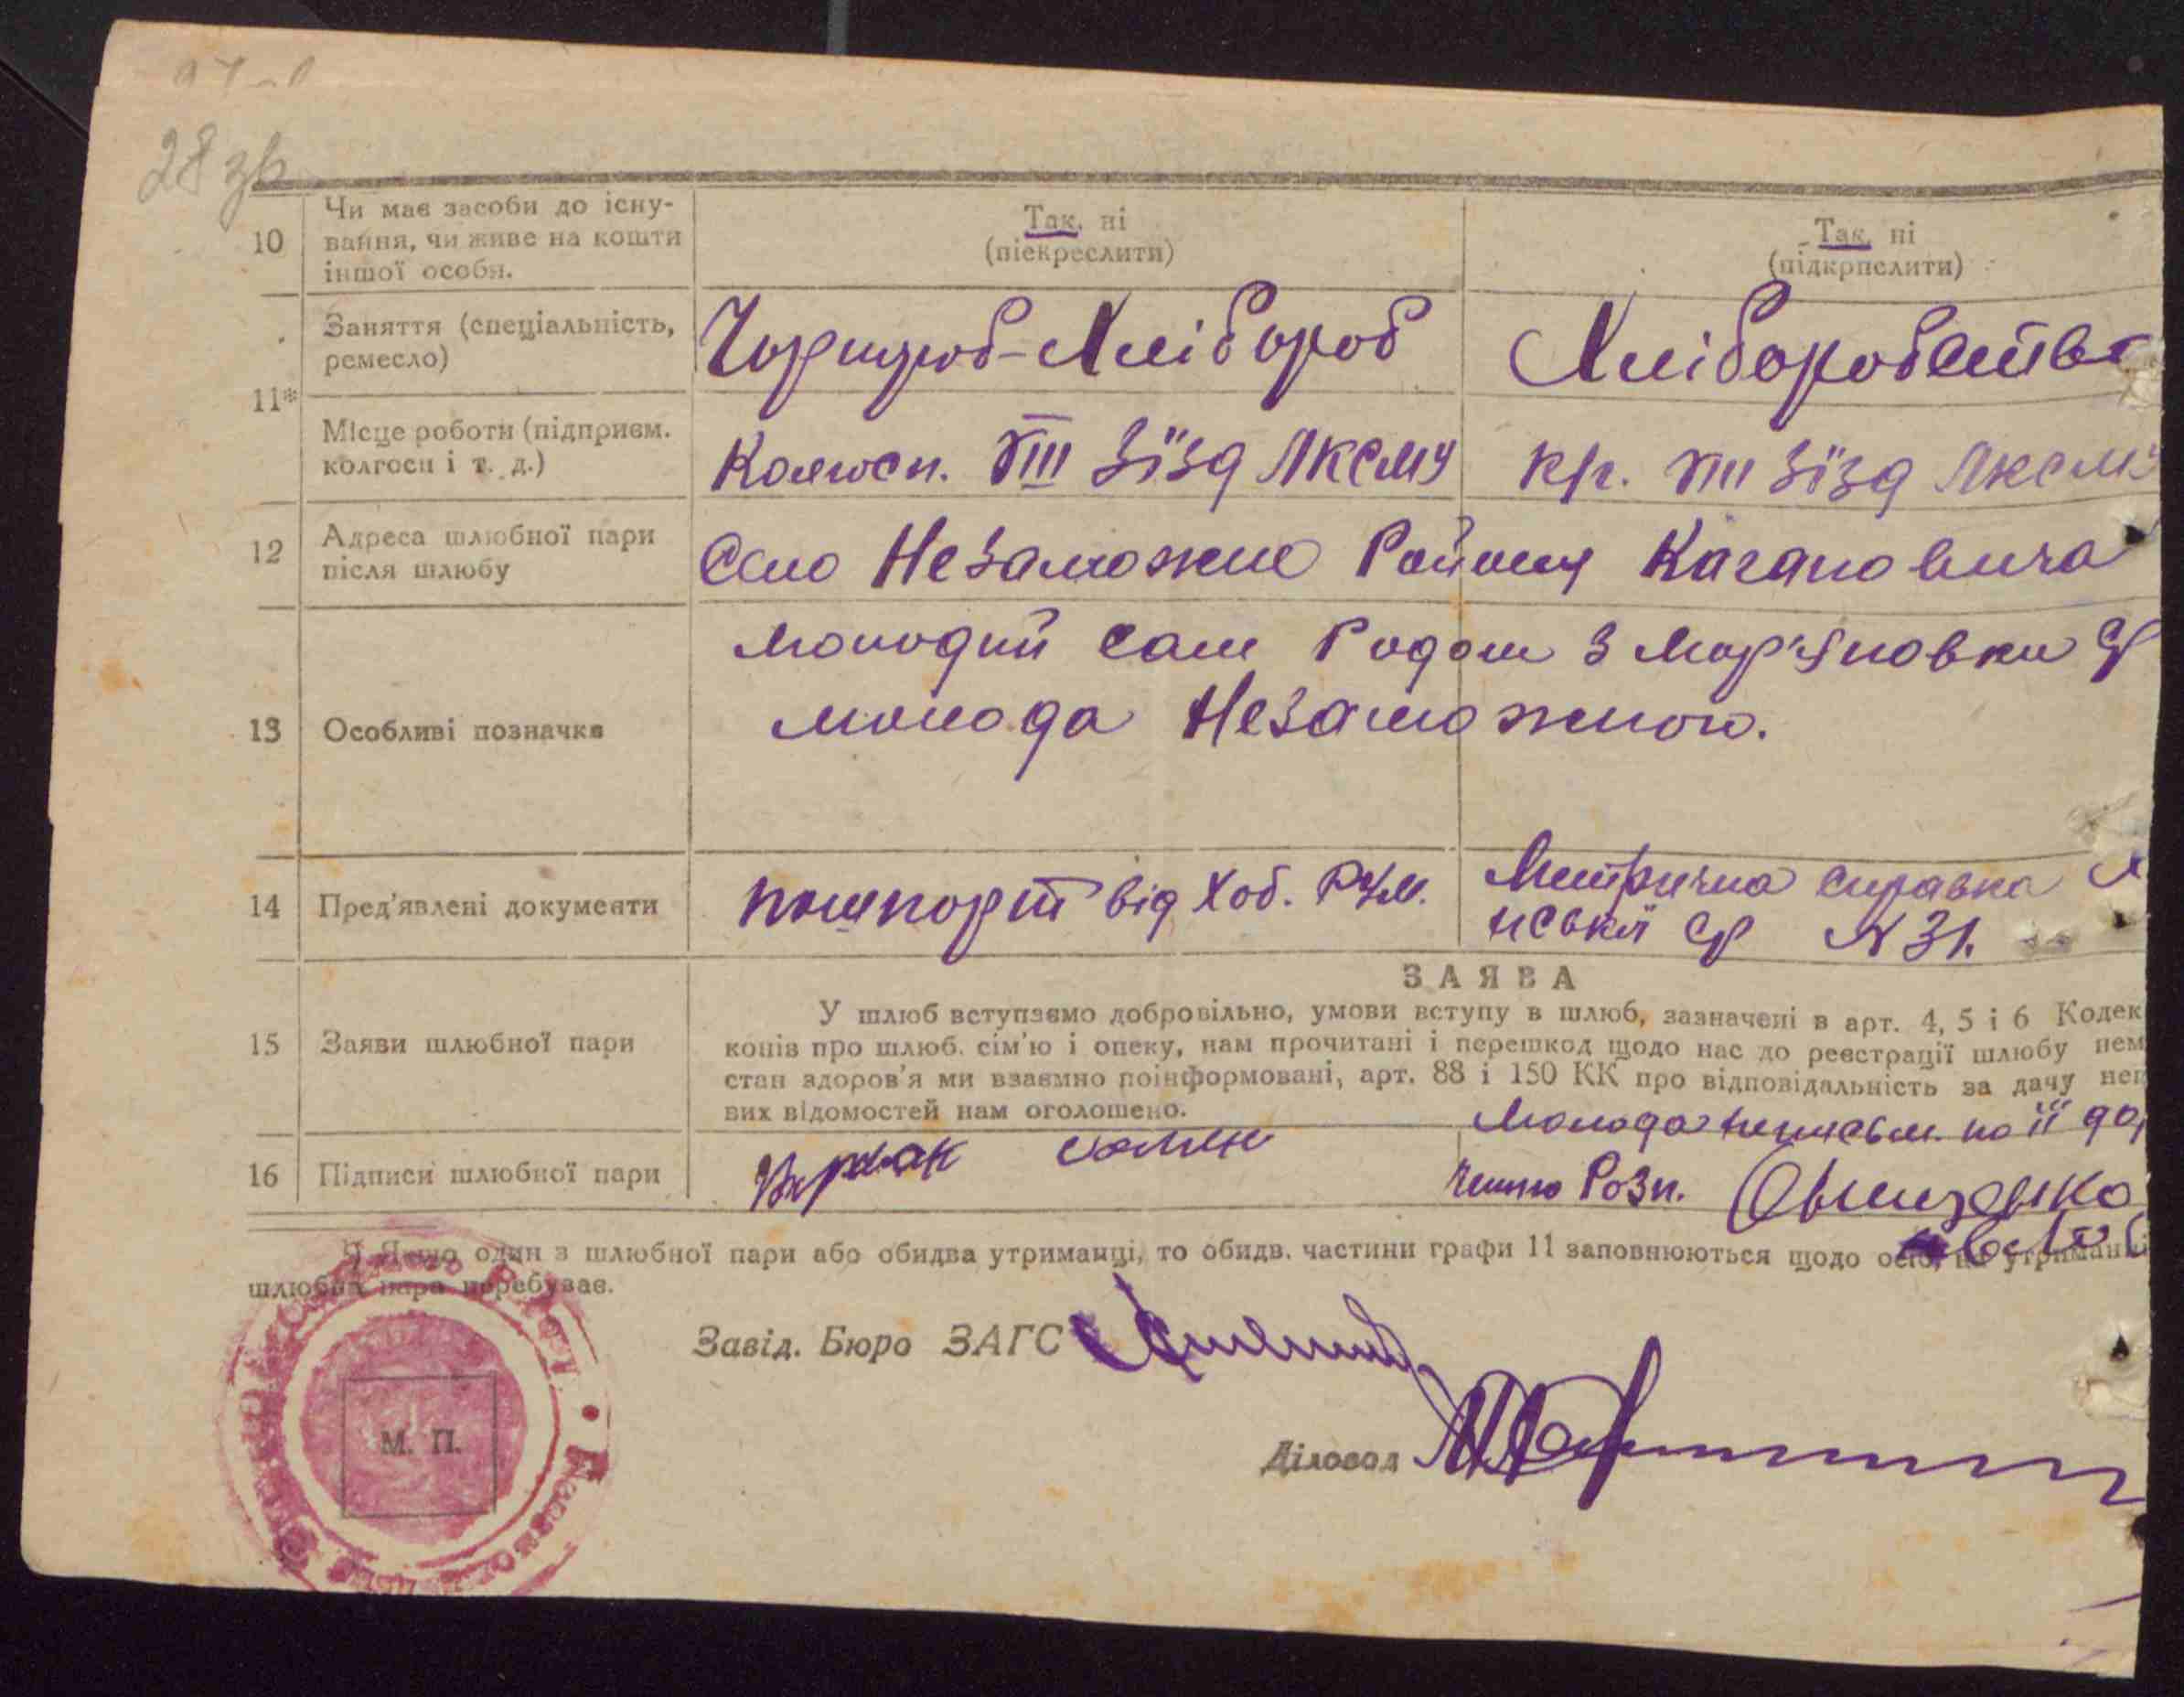 28 зв
10 Чи має засоби до існу-
вання, чи живе на кошти
іншої особи.
Так, ні
(піекреслити)
Так, ні
(підкрпслити)
11*
Заняття (спеціальність,
ремесло)
Хлібороб
Хліборобство
Місце роботи (підприєм.
колгосп і т. д.)
Колгосп. VIII Зїзд ЛКСМУ
кг. VIII Зїзд ЛКСМУ
12 Адреса шлюбної пари
після шлюбу
Село Незаможне Району Кагановича
13 Особливі позначки
молодий сам Родом з Мар'яновки СР
молода Незаможного.
14 Пред'явлені документи
пашпорт від Хоб. РУМ.
Метрична справка
нської СР N 31.
15 Заяви шлюбної пари
ЗАЯВА
У шлюб вступаємо добровільно, умови вступу в шлюб, зазначені в арт. 4, 5 і 6 Кодек
конів про шлюб. сім'ю і опеку, нам прочитані і перешкод щодо нас до реєстрації шлюбу нем
стан здоров'я ми взаємно поінформовані, арт. 88 і 150 КК про відповідальність за дачу неп
вих відомостей нам оголошено.
Молода неписьм. по її до
16 Підписи шлюбної пари
Розп.
Якщо один з шлюбної пари або обидва утриманці, то обидв. частини графи 11 заповнюються щодо осіб, на утриманні
шлюбна пара перебуває.
Завід. Бюро ЗАГС
М. П.
Діловод